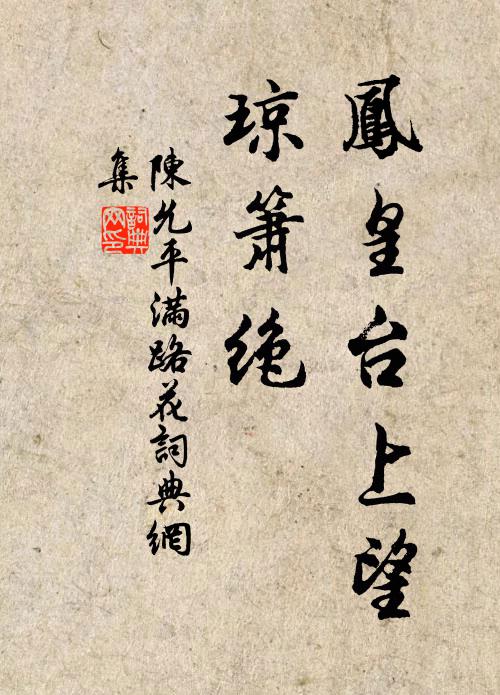 鳳皇台上望
琼簫絶
陳允平满路花詞典網
集
詞典
网印